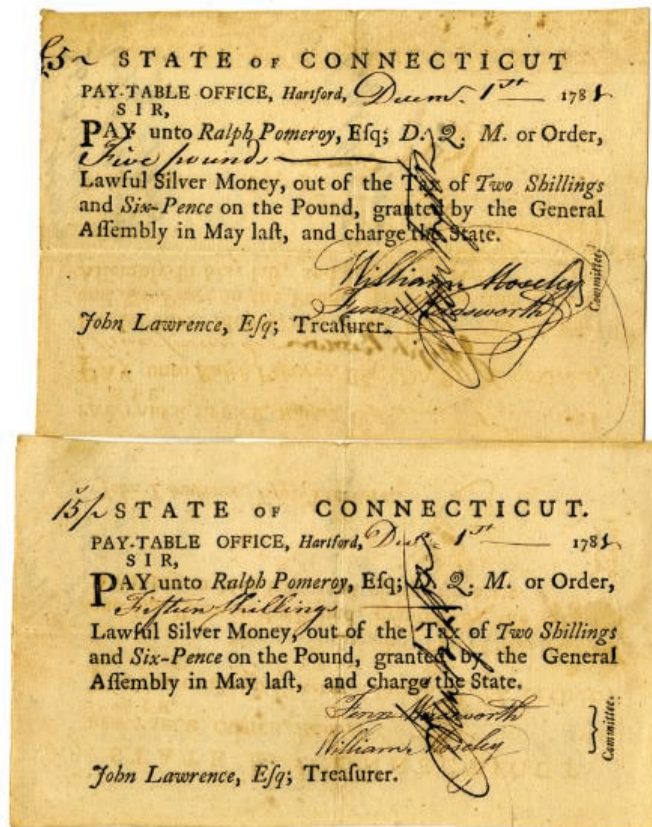 £5~
STATE OF CONNECTICUT
PAY-TABLE OFFICE, Hartford, Decemr. 1st 1781
SIR,
PAY unto Ralph Pomeroy, Eſq; D. Q. M. or Order,
Five pounds
Lawful Silver Money, out of the Tax of Two Shillings
and Six-Pence on the Pound, granted by the General
Aſſembly in May laſt, and charge the State.
William Moseley
Fenn Wadsworth
Committee.
John Lawrence, Eſq; Treaſurer.
15/~ STATE OF CONNECTICUT.
PAY-TABLE OFFICE, Hartford, 1st 1781
SIR,
PAY unto Ralph Pomeroy, Eſq; D. Q. M. or Order,
Fifteen shillings
Lawful Silver Money, out of the Tax of Two Shillings
and Six-Pence on the Pound, granted by the General
Aſſembly in May laſt, and charge the State.
Fenn Wadsworth
William Moseley
Committee.
John Lawrence, Eſq; Treaſurer.